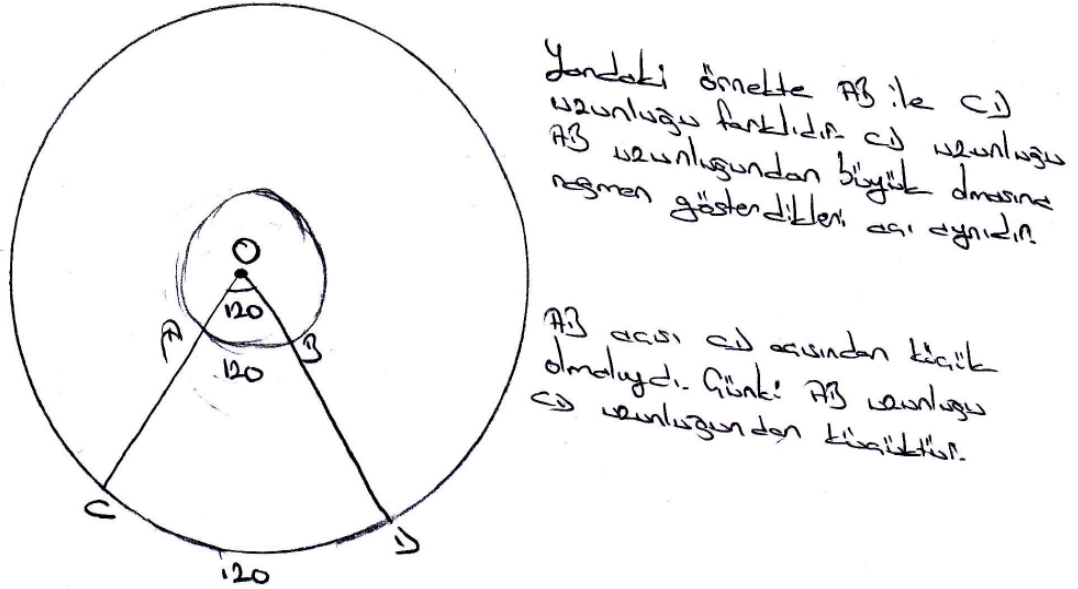 Yandaki örnekte AB ile CD
uzunluğu farklıdır. CD uzunluğu
AB uzunluğundan büyük olmasına
rağmen gösterdikleri açı aynıdır.
AB açısı CD açısından küçük
olmalıydı. Çünki AB uzunluğu
CD uzunluğundan küçüktür.
O
120
A
B
120
C
D
120